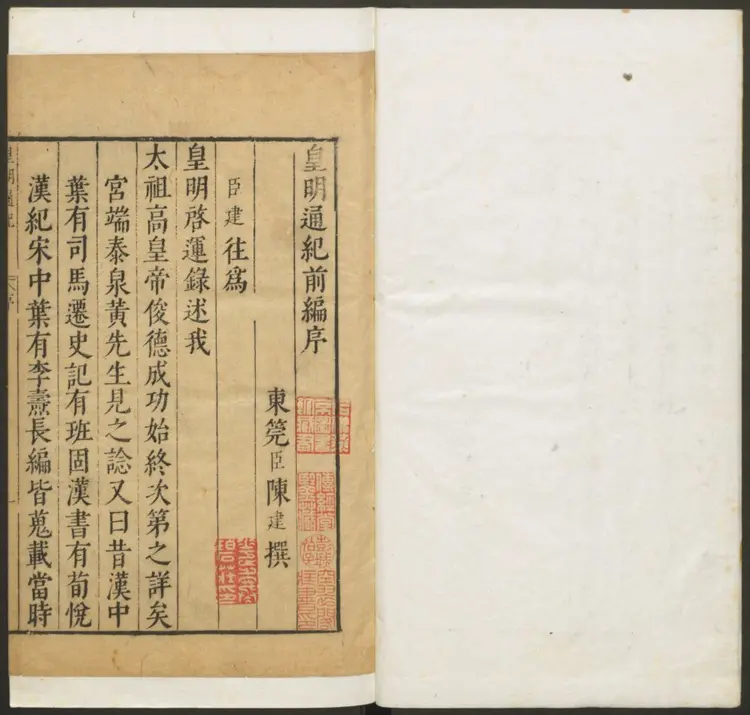 皇明通紀前編序
東筦臣陳建撰
臣建往爲
皇明啓運錄述我
太祖高皇帝俊德成功始終次第之詳矣
宮端泰泉黃先生見之諗又曰昔漢中
葉有司馬遷史記有班固漢書有荀悅
漢紀宋中葉有李燾長編皆蒐載當時
皇明通紀
序